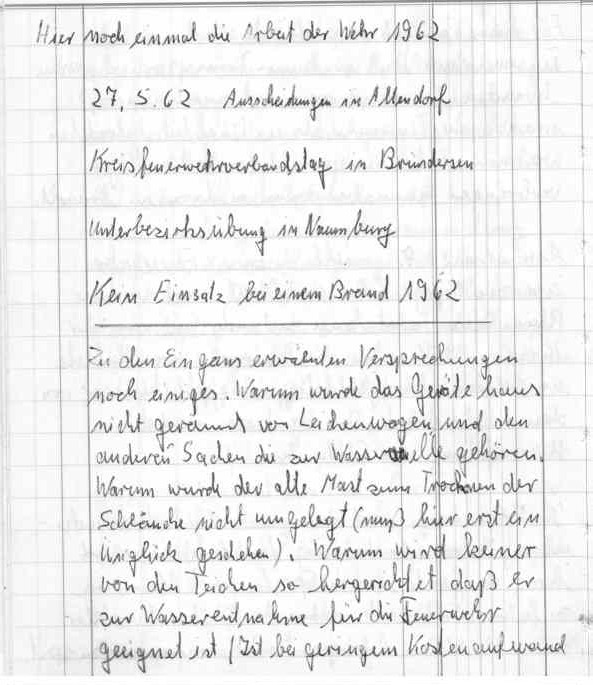 Hier noch einmal die Arbeit der Wehr 1962
27.5.62 Ausscheidungen in Allendorf
Kreisfeuerwehrverbandstag in Bründersen
Unterbezirksübung in Naumburg
Kein Einsatz bei einem Brand 1962
Zu den Eingans erwänten Versprechungen
noch einiges. Warum wurde das Gerätehaus
nicht geräumt von Leichenwagen und den
anderen Sachen die zur gehören.
Warum wurde der alte Mast zum Trocknen der
Schläuche nicht umgelegt (muß hier erst ein
Unglück geschehen). Warum wird keiner
von den Teichen so hergerichtet daß er
zur Wasserentnahme für die Feuerwehr
geeignet ist (Ist bei geringem Kostenaufwand